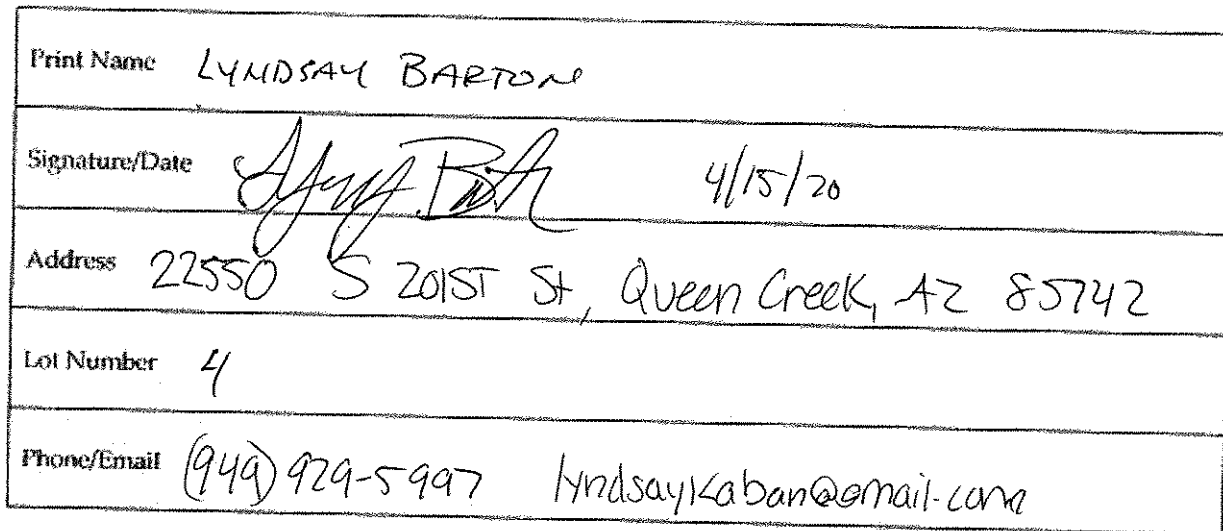 Print Name LYNDSAY BARTON
Signature/Date 4/15/20
Address 22550 S 201ST St, Queen Creek, AZ 85742
Lot Number 4
Phone/Email (949) 929-5997